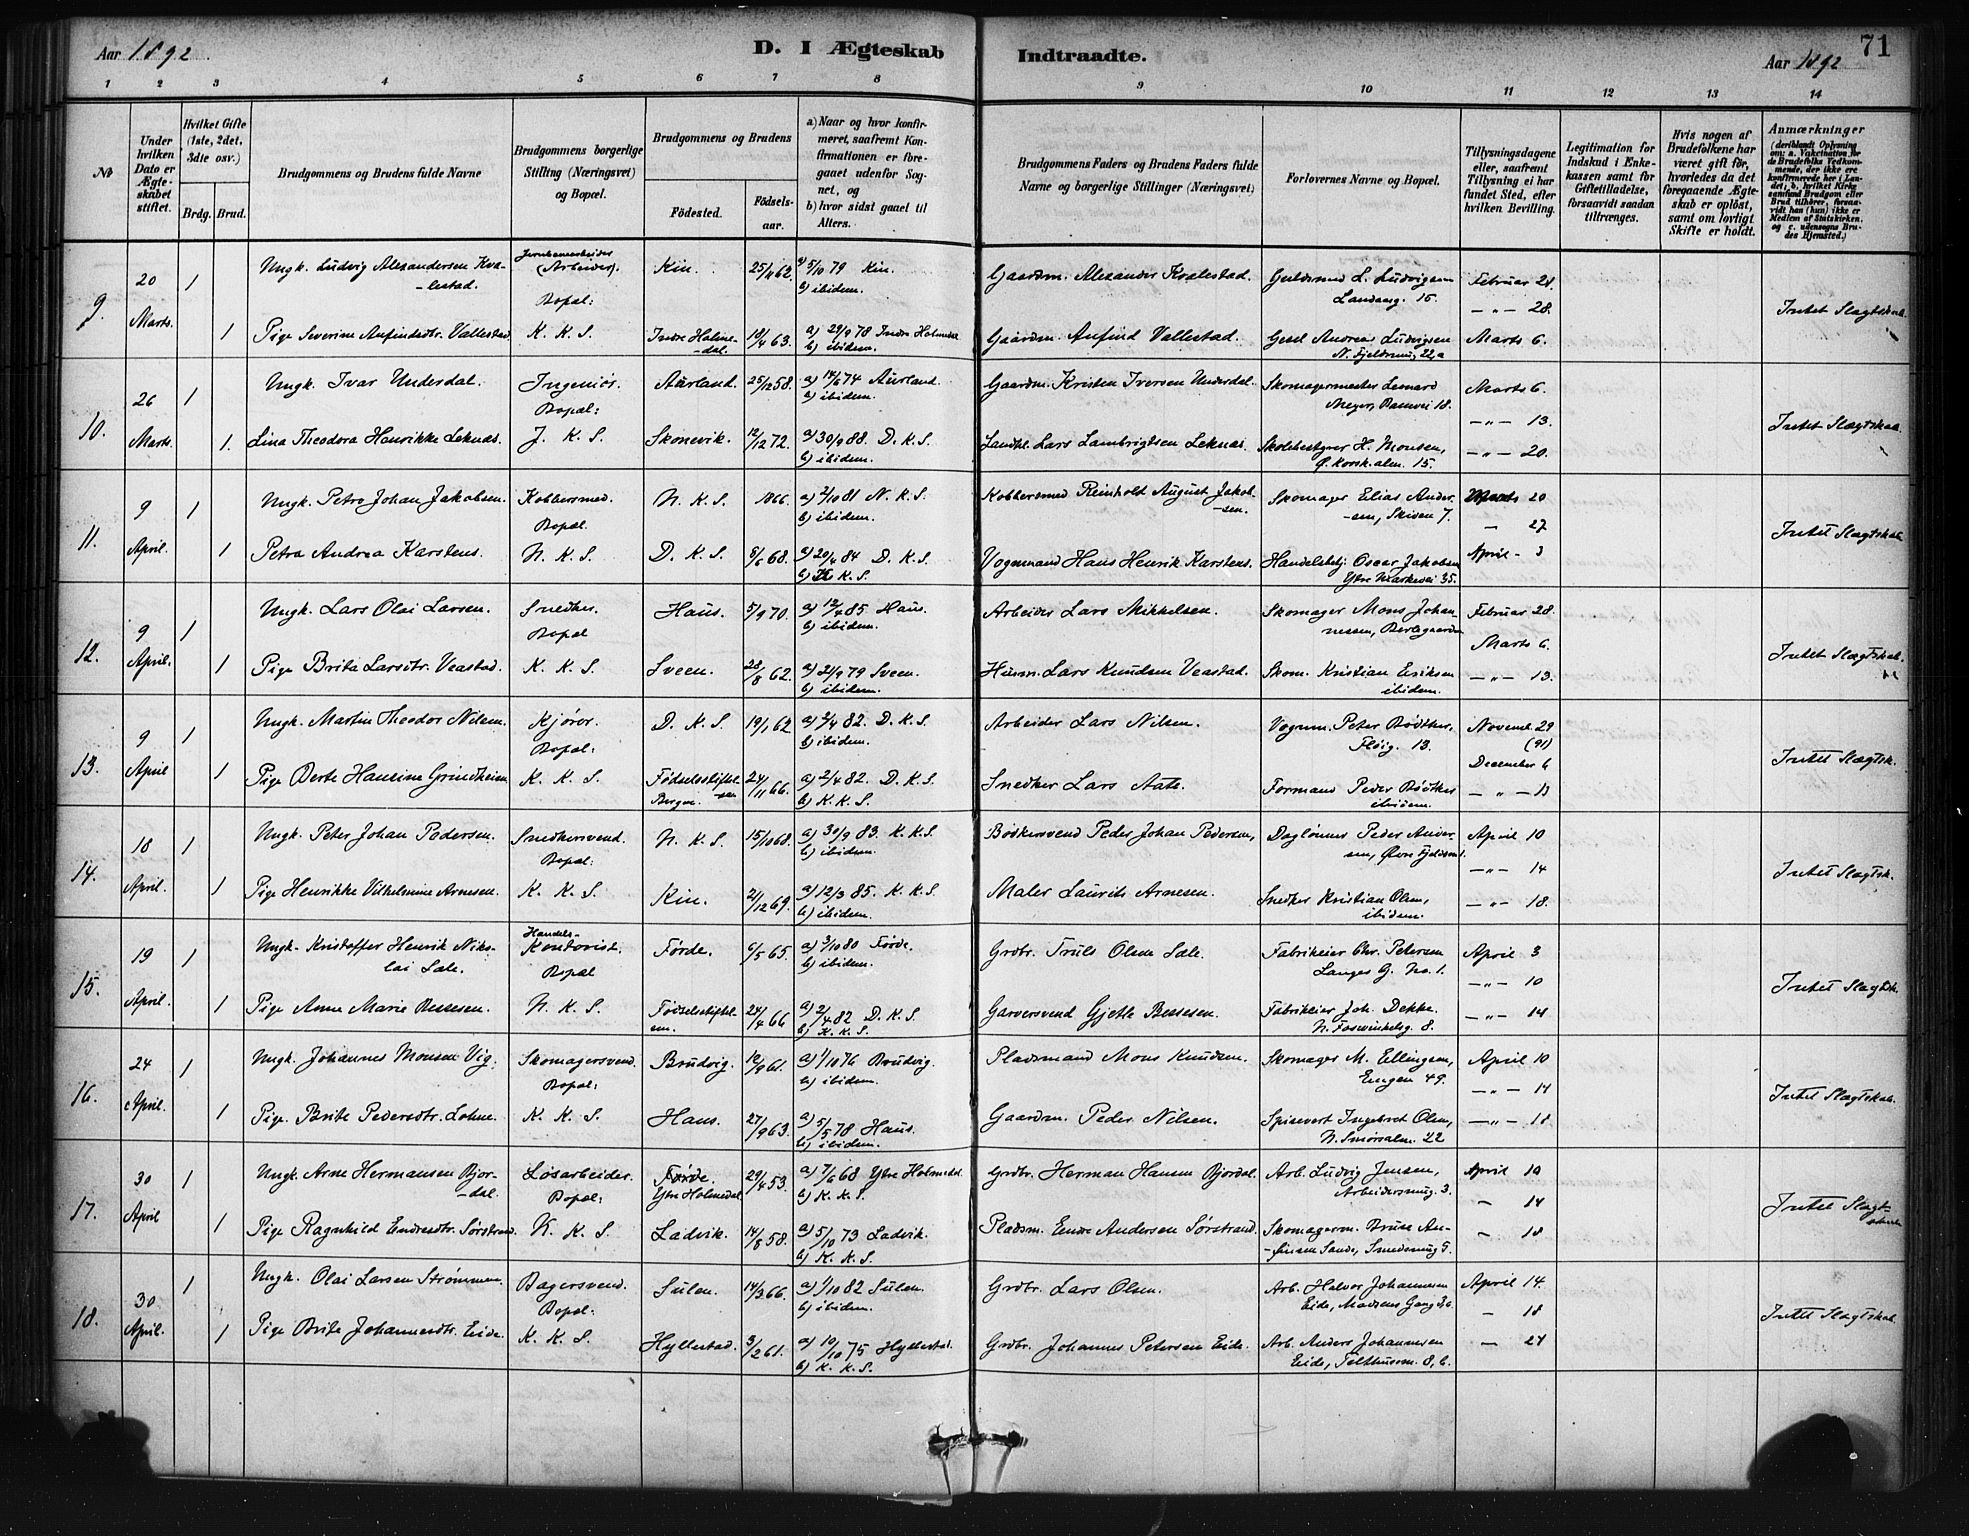 Aar 1892. D. I Ægteskab Indtraadte. Aar 1892 71
1 2 3 4 5 6 7 8 9 10 11 12 13 14
No
Under hvilken Dato er Ægteskabet stiftet.
Hvilket Gifte (1ste, 2det, 3die osv.)
Brdg. Brud.
Brudgommens og Brudens fulde Navne
Brudgommens borgerlige Stilling (Næringsvei) og Bopæl.
Brudgommens og Brudens
Födested. Födselsaar.
a) Naar og hvor konfirmeret, saafremt Konfirmationen er foregaaet udenfor Sognet, og
b) hvor sidst gaaet til Alters.
Brudgommens Faders og Brudens Faders fulde Navne og borgerlige Stillinger (Næringsvei)
Forlovernes Navne og Bopæl.
Tillysningsdagene eller, saafremt Tillysning ei har fundet Sted, efter hvilken Bevilling.
Legitimation for Indskud i Enkekassen samt for Giftetilladelse, forsaavidt saadan tiltrænges.
Hvis nogen af Brudefolkene har været gift för, hvorledes da det foregaaende Ægteskab er oplöst, samt om lovligt Skifte er holdt.
Anmærkninger (deriblandt Oplysning om: a. Vaccination for de Brudefolks Vedkommende, der ikke ere konfirmerede her i Landet; b. hvilket Kirkesamfund Brudgom eller Brud tilhörer, forsaavidt han (hun) ikke er Medlem af Statskirken, og c. udensogns Brudes Hjemsted.)
9. 20 Marts. 1 Ungk. Ludvig Alexandersen Kvalestad. Jernbanearbeider (Arbeider). Bopæl: Kin. 25/11 62. a) 5/10 79 Kin. b) ibidem. Gaardm. Alexander Kvalestad. Guldsmed L. Ludvigsen Landaasg. 16. Februar 21. —"— 28. Intet Slægtskab.
1 Pige Severine Anfindsdtr. Vallestad. K. K. S. Indre Holmedal. 18/4 63. a) 29/9 78 Indre Holmedal b) ibidem. Gaardm. Anfind Vallestad. Gesel Andreas Ludvigsen N. Fjeldsmug 22,a Marts 6.
10. 26 Marts. 1 Ungk. Ivar Underdal. Ingeniör. Bopæl: Aurland. 25/12 58. a) 14/6 74 Aurland. b) ibidem. Gaardm. Kristen Iversen Underdal. Skomagermester Leonard Meyer, 18. Marts 6. —"— 13. Intet Slægtskab.
1. Lina Theodora Henrikke Leknæs. J. K. S. Skonevik. 12/12 72. a) 30/9 88. D. K. S. b) ibidem. Landhl. Lars Lambrigtsen Leknæs. Skolebestyrer H. Monsen, Ø. Korsk.alm. 15. —"— 20.
11. 9 April. 1 Ungk. Petro Johan Jakobsen. Kobbersmed. Bopæl. N. K. S. 1866. a) 2/10 81 N. K. S. b) ibidem. Kobbersmed Reinholt August Jakobsen. Skomager Elias Andersen, Skiven 7. Marts 20 — 27 Intet Slægtskab
1 Petra Andrea Karstens. N. K. S. D. K. S. 5/6 68. a) 20/4 84 D. K. S. b) K. S. Vognmand Hans Henrik Karstens. Handelsbetj. Oscar Jakobsen Ytre Markevei 35. April - 3
12. 9 April. 1 Ungk. Lars Olai Larsen. Snedker. Bopæl Haus. 5/9 70. a) 12/4 85 Haus. b) ibidem. Arbeider Lars Mikkelsen. Skomager Mons Johannessen, Februar 28. Marts 6. Intet Slægtskab.
1 Pige Brita Larsdtr. Veastad. K. K. S. Sveen. 28/8 62. a) 21/9 79 Sveen. b) ibidem. Husm. Lars Knudsen Veastad. Skom. Kristian Eriksen ibidem. —"— 13.
13. 9 April 1 Ungk. Martin Theodor Nilsen. Kjörer. Bopæl: D. K. S 19/1 62. a) 2/4 82. D. K. S. b) ibidem. Arbeider Lars Nilsen. Vognm. Peter Bödtker, Flöig. 13. Novemb. 29 (91) December 6 Intet Slægtsk.
1 Pige Berte Hansine Grindheim. K. K. S. Födselsstiftelsen Bergen. 24/11 66. a) 2/4 82. D. K. S. b) K. K. S. Snedker Lars Aate. Formand Peder Bödtker ibidem. —"— 13
14. 18 April. 1 Ungk. Peter Johan Pedersen. Snedkersvend. Bopæl: N. K. S. 15/10 60. a) 30/9 83. K. K. S. b) ibidem. Bödkersvend Peder Johan Pedersen, Daglönner Peder Andersen, Øvre Fjeldsmt. April 10 —"— 14 Intet Slægtsk.
1 Pige Henrikke Vilhelmine Arnesen. K. K. S. Kin. 21/12 69. a) 12/3 85. K. K. S b) ibidem. Maler Laurits Arnesen. Snedker Kristian Olsen, ibidem. —"— 18.
15. 19 April. 1 Ungk. Kristoffer Henrik Nikolai Sæle. Handels-Kontorist. Bopæl Förde. 6/5 65. a) 3/10 80 Förde. b) ibidem. Grdbr. Truls Olsen Sæle. Fabrikeier Chr. Petersen Langes G. No. 1. April 3 —"— 10 Intet Slægtsk.
1 Pige Anne Marie Bessesen. N. K. S. Födselsstiftelsen. 24/4 66 a) 2/4 82 D. K. S. b) K. K. S. Garversvend Gjetle Bessesen. Fabrikeier Joh. Dekke. N. Foswinkelsg. 8. —"— 14
16. 24 April. 1 Ungk. Johannes Monsen Vig. Skomagersvend. Bopæl: Brudvig. 12/9 61. a) 1/10 76 Brudvig. b) ibidem. Pladsmand Mons Knudsen. Skomager M. Ellingsen, Engen 49. April 10 —"— 14 Intet Slægtskab.
1 Pige Brite Pedersdtr. Lohne. K. K. S. Haus. 27/9 63. a) 5/5 78 Haus. b) ibidem. Gaardm. Peder Nilsen. Spisevert Ingebret Olsen, N. Smörsalm. 22 —"— 18
17. 30 April 1 Ungk. Arne Hermansen Bjordal. Lösarbeider. Bopæl: Förde. Ytre Holmedal 29/4 53. a) 7/6 68 Ytre Holmedal. b) K. K. S. Grdbr. Herman Hansen Bjordal. Arb. Ludvig Jensen, Arbeidersmug 3. April 10 — 14 Intet Slægtskab
1 Pige Ragnhild Endresdtr. Sörstrand. K. K. S Ladvik. 14/8 58. a) 5/10 73 Ladvik. b) K. K. S. Pladsm. Endre Andersen Sörstrand. Skomagerm. Sande, Smedsmug 5. — 18
18. 30 April. 1 Ungk. Olai Larsen Strömmen. Bagersvend. Bopæl: Sulen. 14/3 66. a) 1/10 82 Sulen. b) ibidem. Grdbr. Lars Olsen. Arb. Halvor Johannesen Eide, Madsens Gang 3c. April 14. — 18 Intet Slægtskab.
1 Pige Brite Johannesdtr. Eide. K. K. S. Hyllestad. 3/2 61. a) 10/10 75 Hyllestad. b) K. K. S. Grdbr. Johannes Petersen Eide. Arb. Anders Johannesen Eide, 8,b. — 24